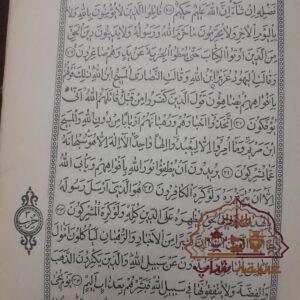 فضله ان شاء ان الله عليم حكيم قاتلوا الذين لا يؤمنون بالله ولا
باليوم الآخر ولا يحرمون ما حرم الله ورسوله ولا يدينون دين الحق
من الذين اوتوا الكتاب حتى يعطوا الجزية عن يد وهم صاغرون
وقالت اليهود عزير ابن الله وقالت النصارى المسيح ابن الله ذلك قولهم
بافواههم يضاهؤن قول الذين كفروا من قبل قاتلهم الله انى
يؤفكون اتخذوا احبارهم ورهبانهم اربابا من دون الله والمسيح
ابن مريم وما امروا الا ليعبدوا الها واحدا لا اله الا هو سبحانه
عما يشركون يريدون ان يطفؤا نور الله بافواههم ويابى الله
الا ان يتم نوره ولو كره الكافرون هو الذى ارسل رسوله
ليظهره على الدين كله ولو كره المشركون
من الاحبار والرهبان لياكلون
ون عن سبيل الله والذين يكنزون الذهب
والفضة ولا ينفقونها فى سبيل الله فبشرهم بعذاب اليم يوم يحمى
حزب